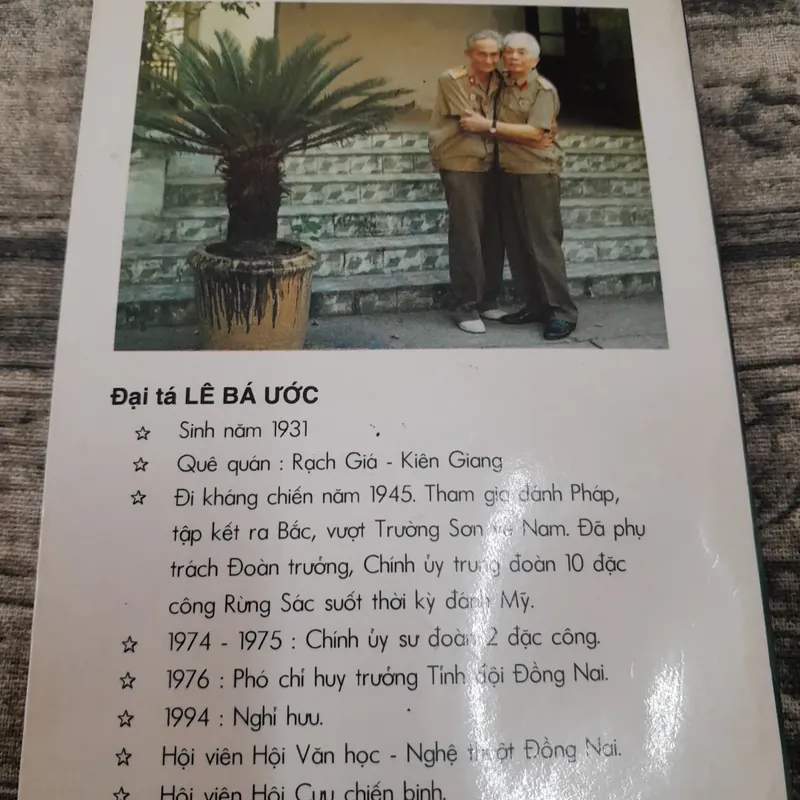 Đại tá LÊ BÁ ƯỚC
☆ Sinh năm 1931
☆ Quê quán : Rạch Giá - Kiên Giang
☆ Đi kháng chiến năm 1945. Tham gia đánh Pháp,
tập kết ra Bắc, vượt Trường Sơn về Nam. Đã phụ
trách Đoàn trưởng, Chính ủy trung đoàn 10 đặc
công Rừng Sác suốt thời kỳ đánh Mỹ.
☆ 1974 - 1975 : Chính ủy sư đoàn 2 đặc công.
☆ 1976 : Phó chỉ huy trưởng Tỉnh đội Đồng Nai.
☆ 1994 : Nghỉ hưu.
☆ Hội viên Hội Văn học - Nghệ thuật Đồng Nai.
☆ Hội viên Hội Cựu chiến binh.